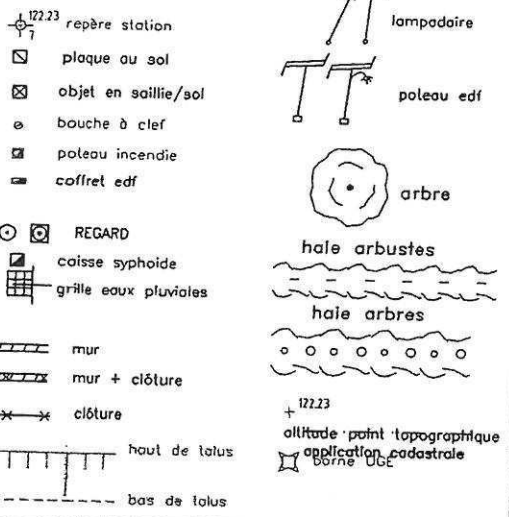 122.23
7
repère station
plaque au sol
objet en saillie/sol
bouche à clef
poteau incendie
coffret edf
REGARD
caisse syphoide
grille eaux pluviales
mur
mur + clôture
clôture
haut de talus
bas de talus
lampadaire
poteau edf
arbre
haie arbustes
haie arbres
122.23
altitude point topographique
application cadastrale
borne OGE